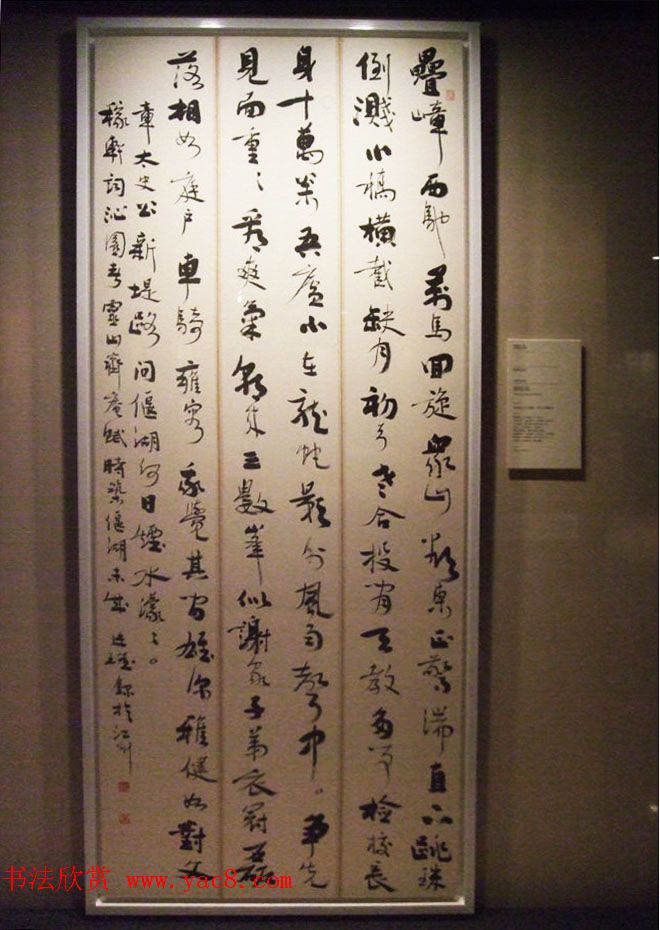 疊嶂西馳萬馬回旋眾山欲東正驚湍直下跳珠
倒濺小橋橫截缺月初弓老合投閒天教多事檢校長
身十萬松吾廬小在龍蛇影外風雨聲中。爭先
見面重〻看爽氣朝來三數峯似謝家子弟衣冠磊
落相如庭戶車騎雍容我覺其間雄深雅健如對文
章太史公新堤路問偃湖何日煙水濛〻。
稼軒詞沁園春靈山齊菴賦時築偃湖未成
书法欣赏 www.yac8.com